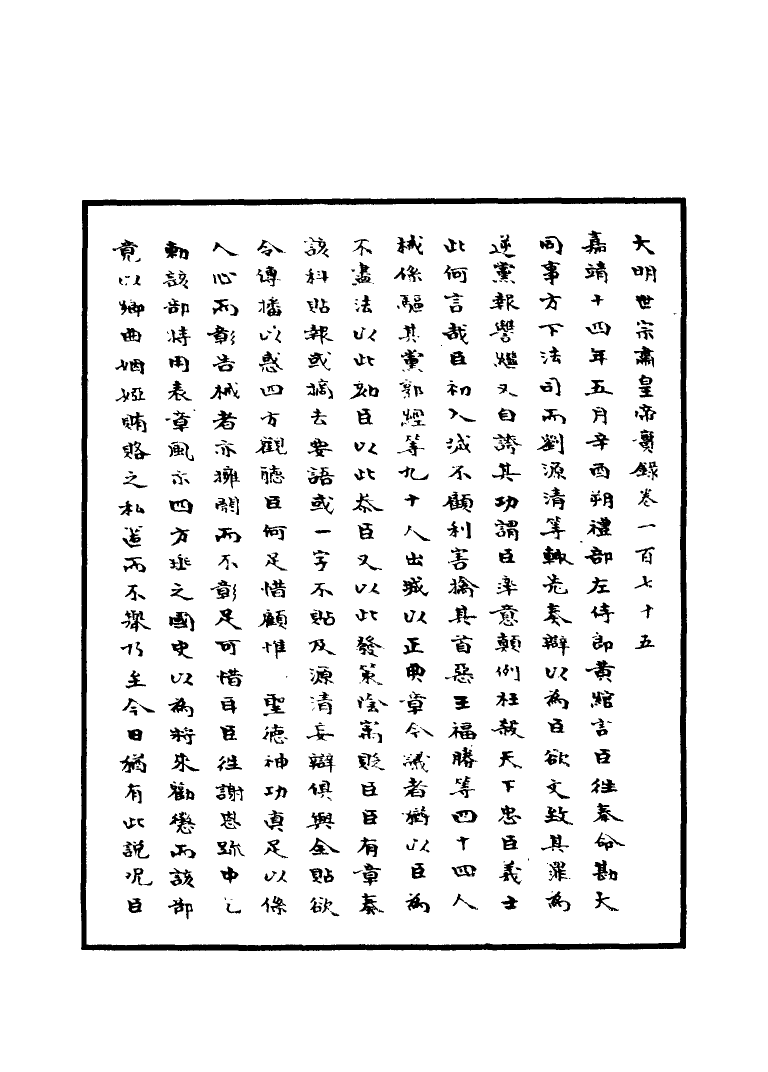 大明世宗肅皇帝實錄卷一百七十五
嘉靖十四年五月辛酉朔禮部左侍郎黃綰言臣往奉命勘大
同事方下法司而劉源清等輒先奏辯以為臣欲文致其罪為
逆黨報讐繼又自誇其功謂臣率意顛倒枉殺天下忠臣義士
此何言哉臣初入城不顧利害擒其首惡王福勝等四十四人
械係驅其黨郭經等九十人出城以正典章今議者猶以臣為
不盡法以此劾臣以此叅臣又以此發策陰寓貶臣臣有章奏
該科貼報或摘去要語或一字不貼及源清妄辯俱與全貼欲
令傳播以惑四方觀聽臣何足惜顧惟 聖德神功真足以條
人心而彰吿械者亦擁閼而不彰足可惜耳臣徃謝恩疏中乞
勅該部將用表章風示四方埀之國史以為將來勸懲而該部
竟以鄉曲姻婭賄賂之私遏而不舉乃至今日猶有此說况臣